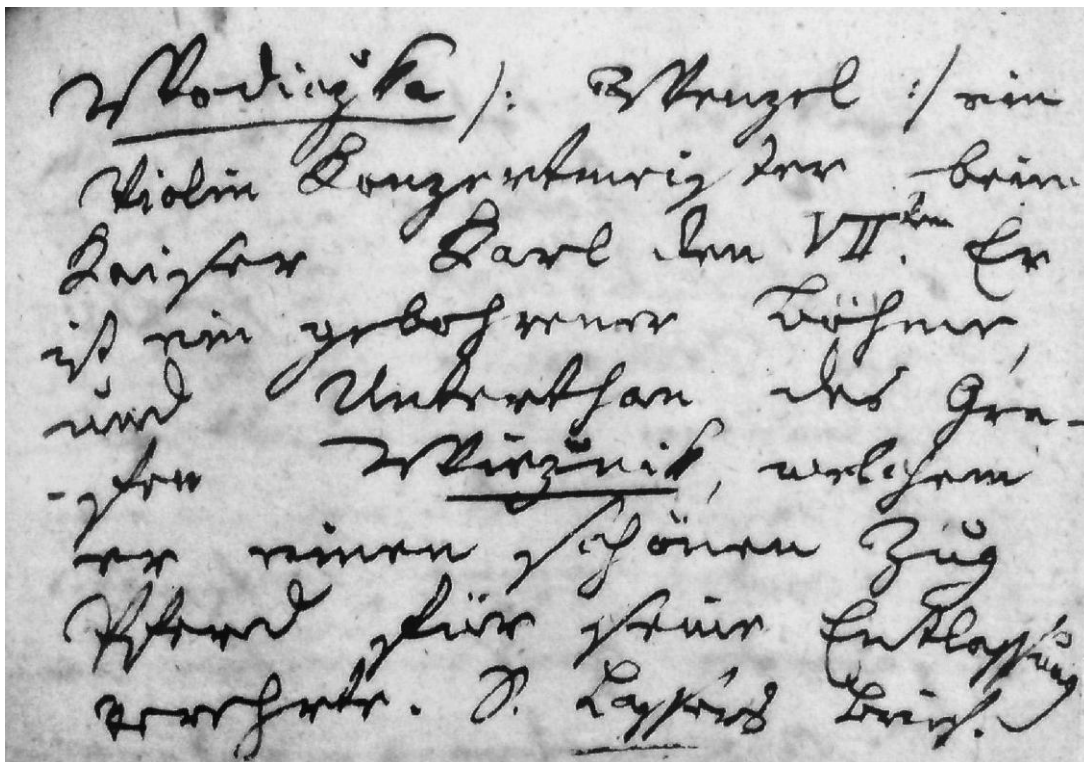 Wodiczka /: Wenzel :/ ein
Violin Konzertmeister beim
Kaiser Karl den VII.ten Er
ist ein gebohrener Böhme,
und Unterthan des Gra-
-fen Wieznik, welchem
er einen schönen Zug
Pferd für seine Entlassung
verehrte. S. Lassers Brief.